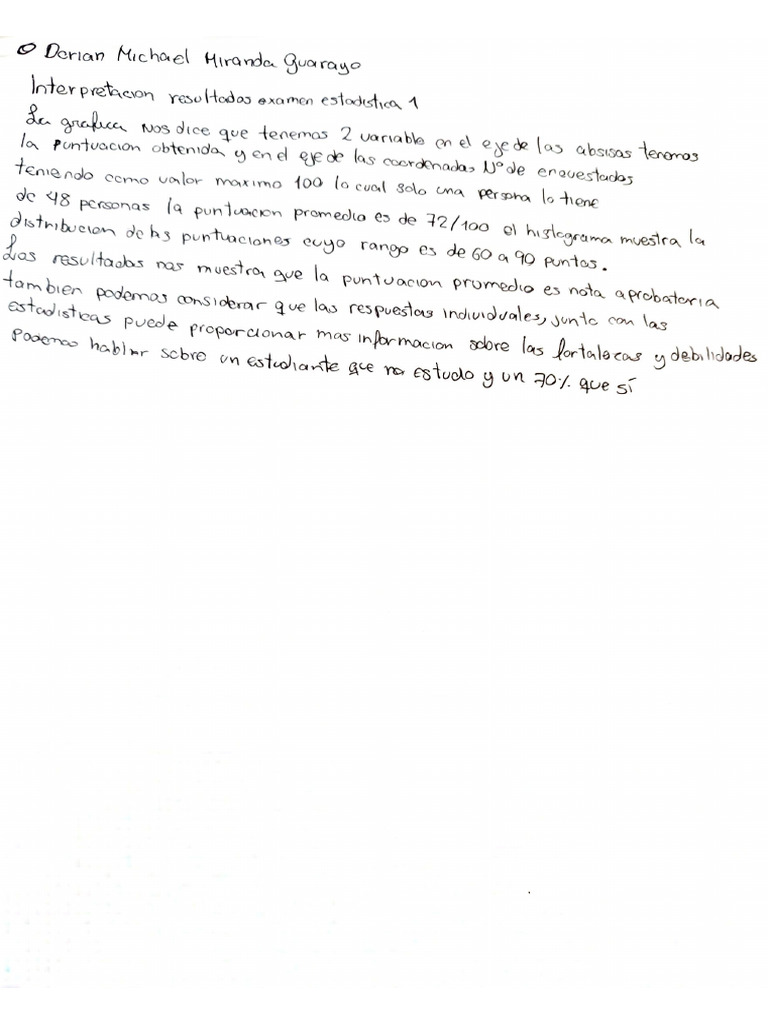 Derian Michael Miranda Guarayo
Interpretacion resultados examen estadistica 1
La grafica nos dice que tenemos 2 variable en el eje de las absisas tenemos
la puntuacion obtenida y en el eje de las coordenadas N° de enquestados
teniendo como valor maximo 100 lo cual solo una persona lo tiene
de 48 personas la puntuacion promedio es de 72/100 el histograma muestra la
distribucion de las puntuaciones cuyo rango es de 60 a 90 puntos.
Los resultados nos muestra que la puntuacion promedio es nota aprobatoria
tambien podemos considerar que las respuestas individuales, junto con las
estadisticas puede proporcionar mas informacion sobre las fortalecas y debilidades
Podemos hablar sobre un estudiante que no estudo y un 70% que sí